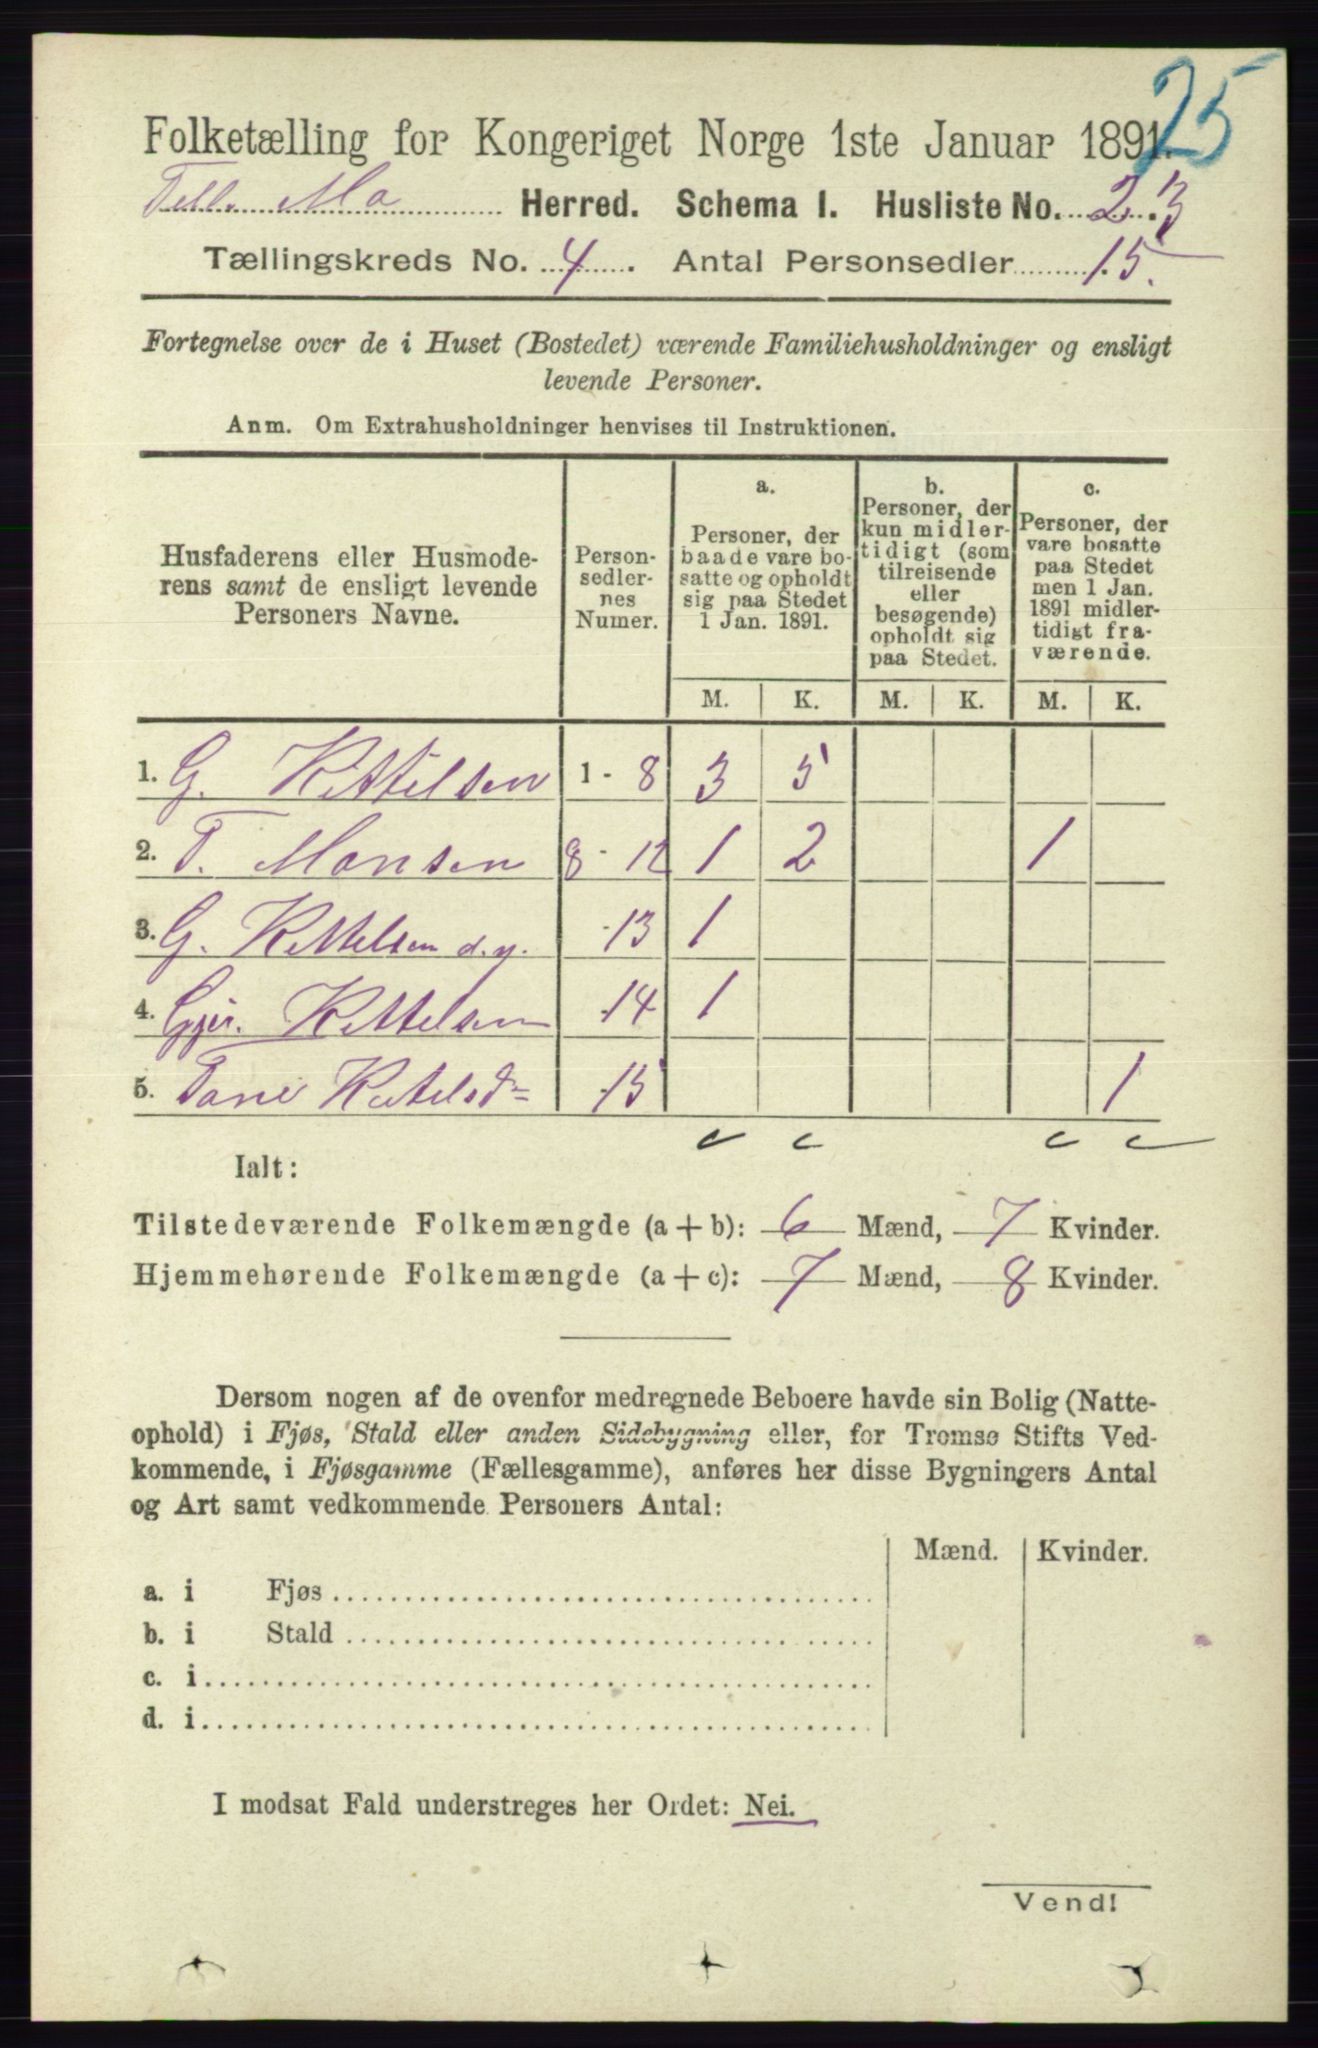 25
Folketælling for Kongeriget Norge 1ste Januar 1891.
Tell. Mo Herred. Schema I. Husliste No. 23
Tællingskreds No. 4. Antal Personsedler 15.
Fortegnelse over de i Huset (Bostedet) værende Familiehusholdninger og ensligt
levende Personer.
Anm. Om Extrahusholdninger henvises til Instruktionen.
Husfaderens eller Husmode-
rens samt de ensligt levende
Personers Navne.
Person-
sedler-
nes
Numer.
a.
Personer, der
baade vare bo-
satte og opholdt
sig paa Stedet
1 Jan. 1891.
b.
Personer, der
kun midler-
tidigt (som
tilreisende
eller
besøgende)
opholdt sig
paa Stedet.
c.
Personer, der
vare bosatte
paa Stedet
men 1 Jan.
1891 midler-
tidigt fra-
værende.
M. K. M. K. M. K.
1. G. Kittilsen 1 - 8 3 5
2. T. Monsen 8 - 12 1 2 1
3. G. Kittelsen d.y. 13 1
4. Gjer. Kittelsen 14 1
5. Tone Kittelsd 15 1
Ialt:
Tilstedeværende Folkemængde (a + b): 6 Mænd, 7 Kvinder.
Hjemmehørende Folkemængde (a + c): 7 Mænd, 8 Kvinder.
Dersom nogen af de ovenfor medregnede Beboere havde sin Bolig (Natte-
ophold) i Fjøs, Stald eller anden Sidebygning eller, for Tromsø Stifts Ved-
kommende, i Fjøsgamme (Fællesgamme), anføres her disse Bygningers Antal
og Art samt vedkommende Personers Antal:
Mænd. Kvinder.
a. i Fjøs
b. i Stald
c. i
d. i
I modsat Fald understreges her Ordet: Nei.
Vend!